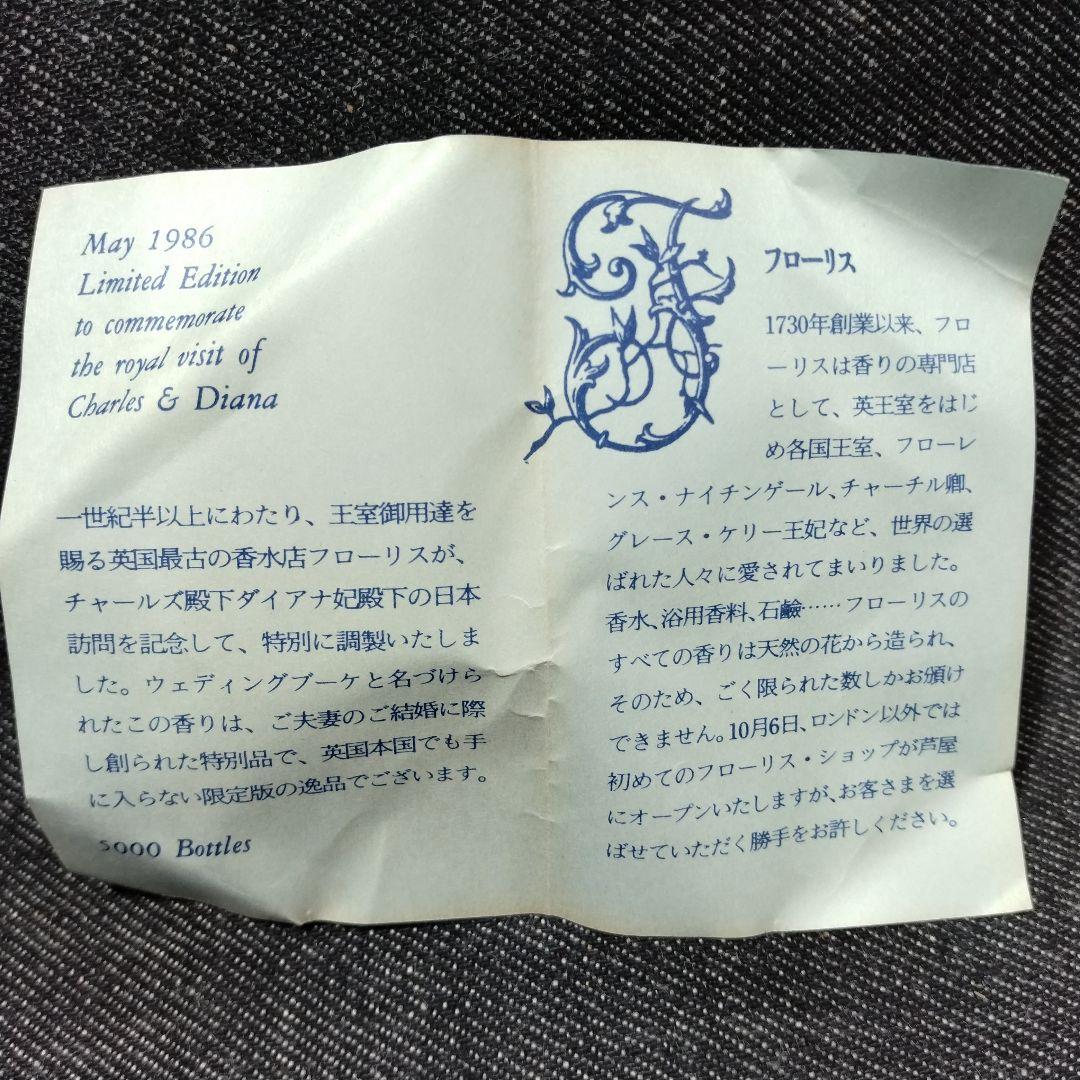 May 1986
Limited Edition
to commemorate
the royal visit of
Charles & Diana
一世紀半以上にわたり、王室御用達を
賜る英国最古の香水店フローリスが、
チャールズ殿下ダイアナ妃殿下の日本
訪問を記念して、特別に調製いたしま
した。ウェディングブーケと名づけら
れたこの香りは、ご夫妻のご結婚に際
し創られた特別品で、英国本国でも手
に入らない限定版の逸品でございます。
5000 Bottles
フローリス
1730年創業以来、フロ
ーリスは香りの専門店
として、英王室をはじ
め各国王室、フローレ
ンス・ナイチンゲール、チャーチル卿、
グレース・ケリー王妃など、世界の選
ばれた人々に愛されてまいりました。
香水、浴用香料、石鹼……フローリスの
すべての香りは天然の花から造られ、
そのため、ごく限られた数しかお頒け
できません。10月6日、ロンドン以外では
初めてのフローリス・ショップが芦屋
にオープンいたしますが、お客さまを選
ばせていただく勝手をお許しください。